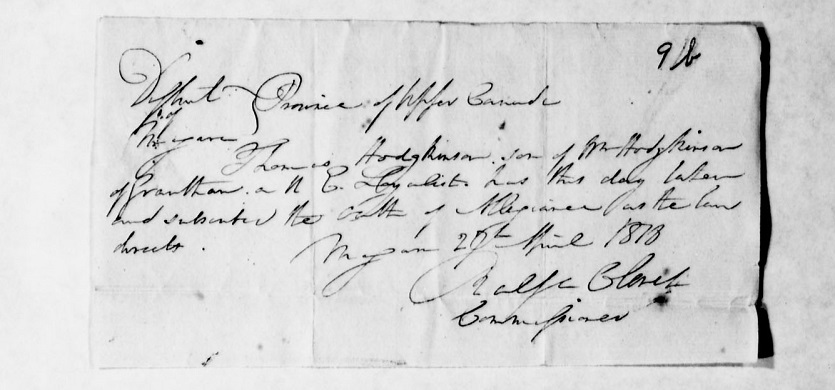 9 b
District } Province of Upper Canada
of
Niagara
Thomas Hodgkinson son of Wm Hodgkinson
of Grantham a U E Loyalist has this day taken
and subscribed the Oath of Allegiance as the law
directs.
Niagara April 1813
Ralph Clench
Commissioner